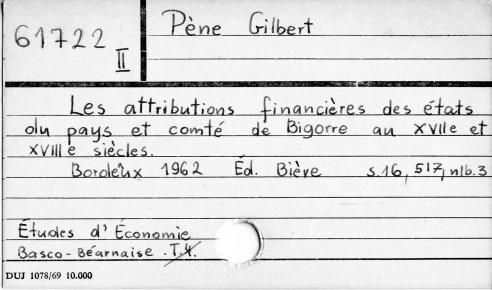 61722
II
Pène Gilbert
Les attributions financières des états
du pays et comté de Bigorre au XVIIe et
XVIIIe siècles.
Bordeaux 1962 Éd. Bière s.16, 517, nlb.3
Études d'Économie
Basco-Béarnaise. T.4.
DUJ 1078/69 10.000